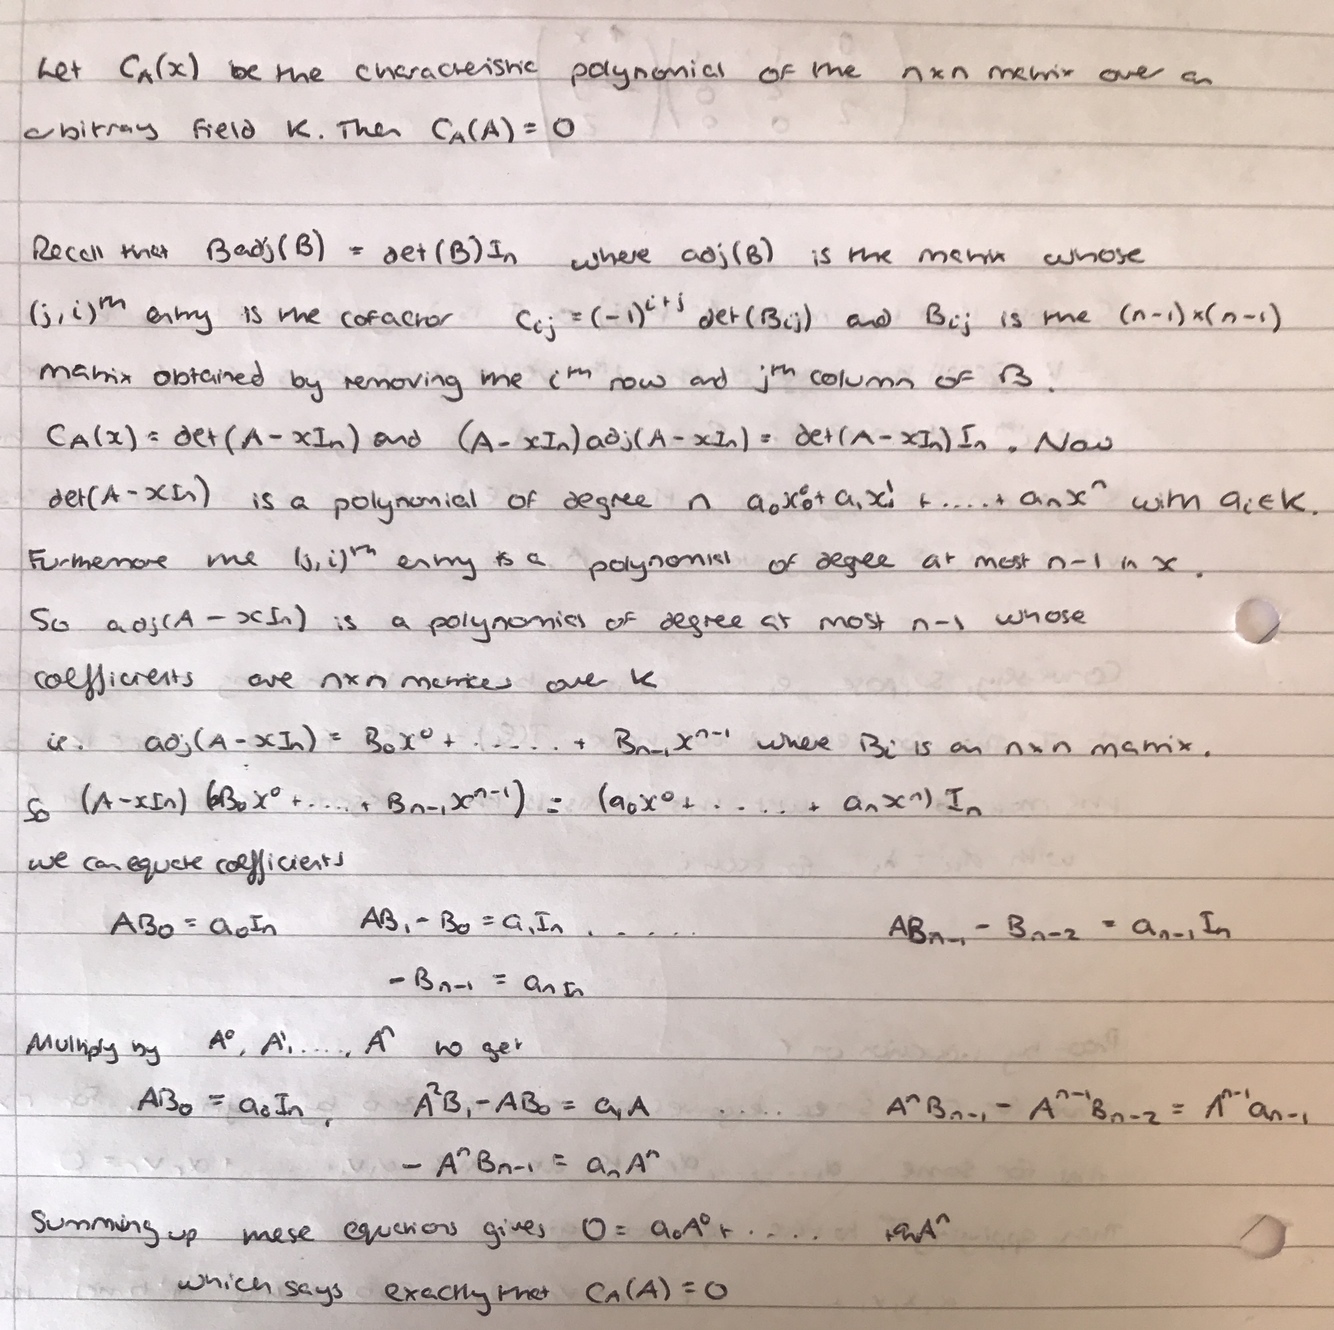 Let C_A(x) be the characteristic polynomial of the n×n matrix over an
arbitrary field K. Then C_A(A) = 0
Recall that Badj(B) = det(B)I_n where adj(B) is the matrix whose
(j,i)^th entry is the cofactor C_ij = (-1)^{i+j} det(B_ij) and B_ij is the (n-1)×(n-1)
matrix obtained by removing the i^th row and j^th column of B.
C_A(x) = det(A-xI_n) and (A-xI_n)adj(A-xI_n) = det(A-xI_n)I_n. Now
det(A-xI_n) is a polynomial of degree n a_0x^0 + a_1x^1 + ..... + a_nx^n with a_i∈K.
Furthermore the (j,i)^th entry is a polynomial of degree at most n-1 in x.
So adj(A-xI_n) is a polynomial of degree at most n-1 whose
coefficients are n×n matrices over K
ie. adj(A-xI_n) = B_0x^0 + ...... + B_{n-1}x^{n-1} where B_i is an n×n matrix.
So (A-xI_n) (B_0x^0 + ..... + B_{n-1}x^{n-1}) = (a_0x^0 + ..... + a_nx^n) I_n
we can equate coefficients
AB_0 = a_0I_n AB_1 - B_0 = a_1I_n ...... AB_{n-1} - B_{n-2} = a_{n-1}I_n
-B_{n-1} = a_nI_n
Multiply by A^0, A^1, ...., A^n to get
AB_0 = a_0I_n, A^2B_1 - AB_0 = a_1A ..... A^nB_{n-1} - A^{n-1}B_{n-2} = A^{n-1}a_{n-1}
- A^nB_{n-1} = a_nA^n
Summing up these equations gives 0 = a_0A^0 + ..... + a_nA^n
which says exactly that C_A(A) = 0